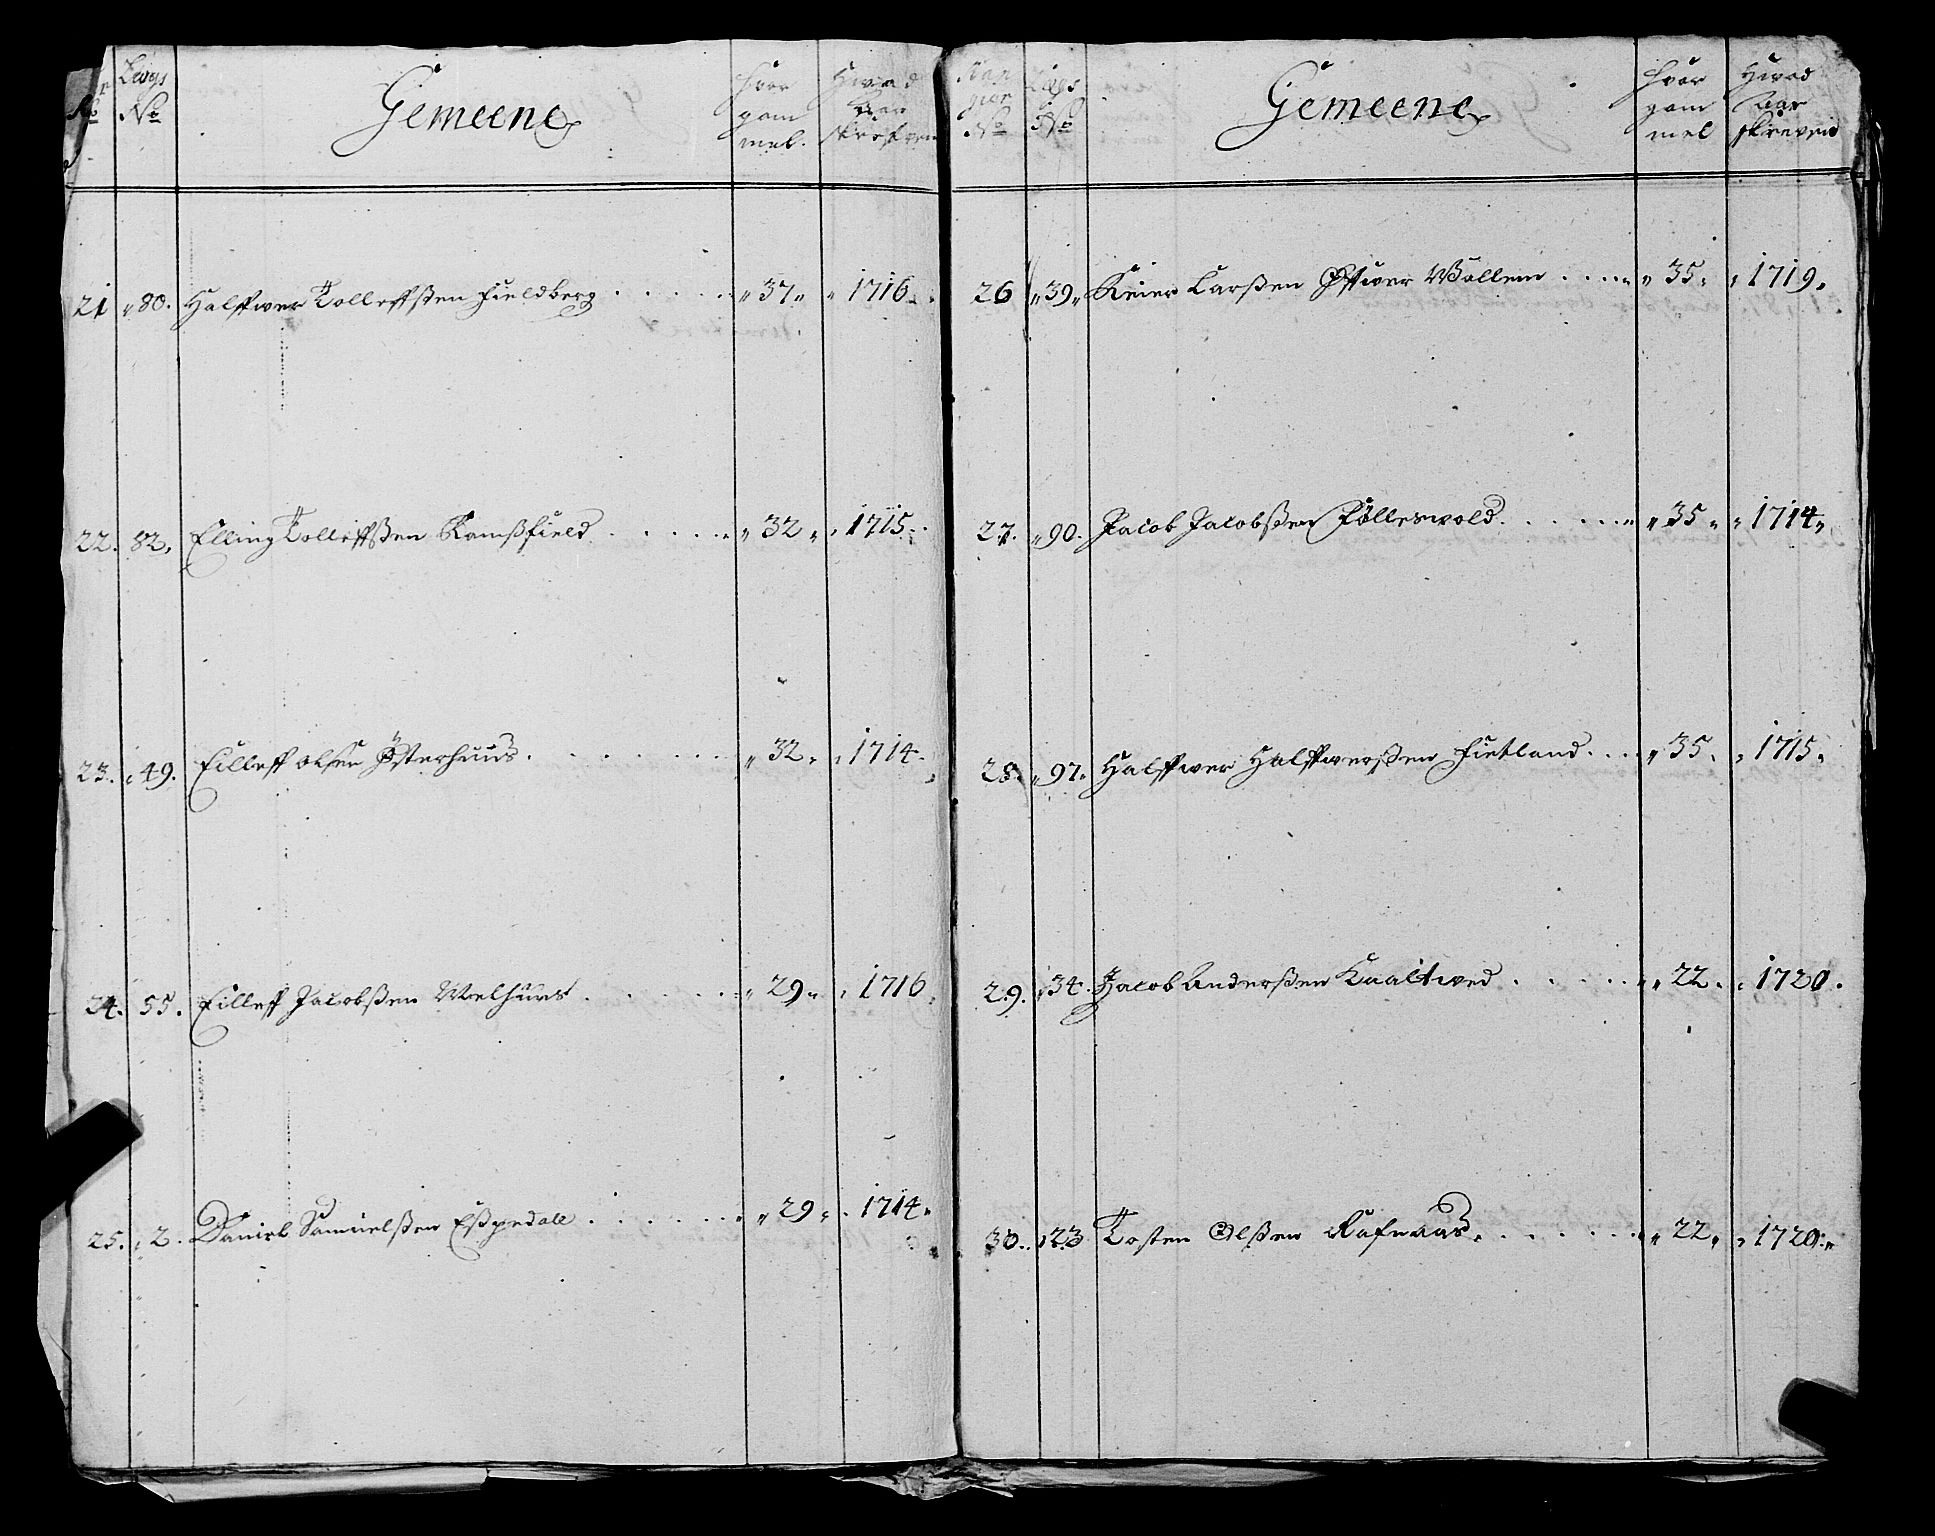 No Læggs No Gemeene hvor gammel. Hvad Aar skrefven
21 80. Halffwor Tolleffßen Fieldberg 37 1716.
22. 82. Elling Tolleffßen Ramßfield 32 1715.
23. 49. Eilleff olsen Østerhuus. 32 1714.
24. 55. Eilleff Jacobßen Melhuus 29 1716
25. 2. Daniel Samuelßen Eßpedall 29 1714
No No Gemeene hvor gammel Hvad Aar skreven
26 39 Reier Larßen Øfwer Wollem 35 1719.
27. 90. Jacob Jacobßen Follesvold. 35 1714
28. 97. Halffwer Halffwerßen Fietland. 35. 1715.
29. 34. Jacob Anderßen Kaaltved 22. 1720.
30. 123 Tosten Olßen Rafnaas. 22. 1720.